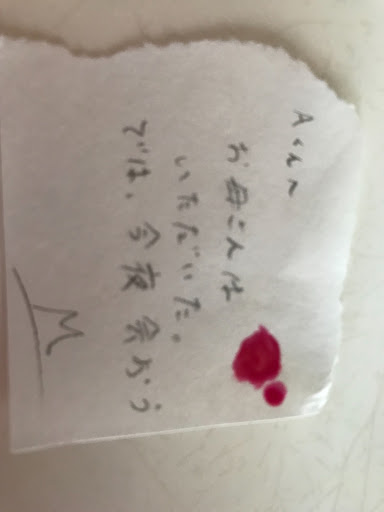 Aくんへ
お母さんは
いただいた。
では、今夜会おう
M